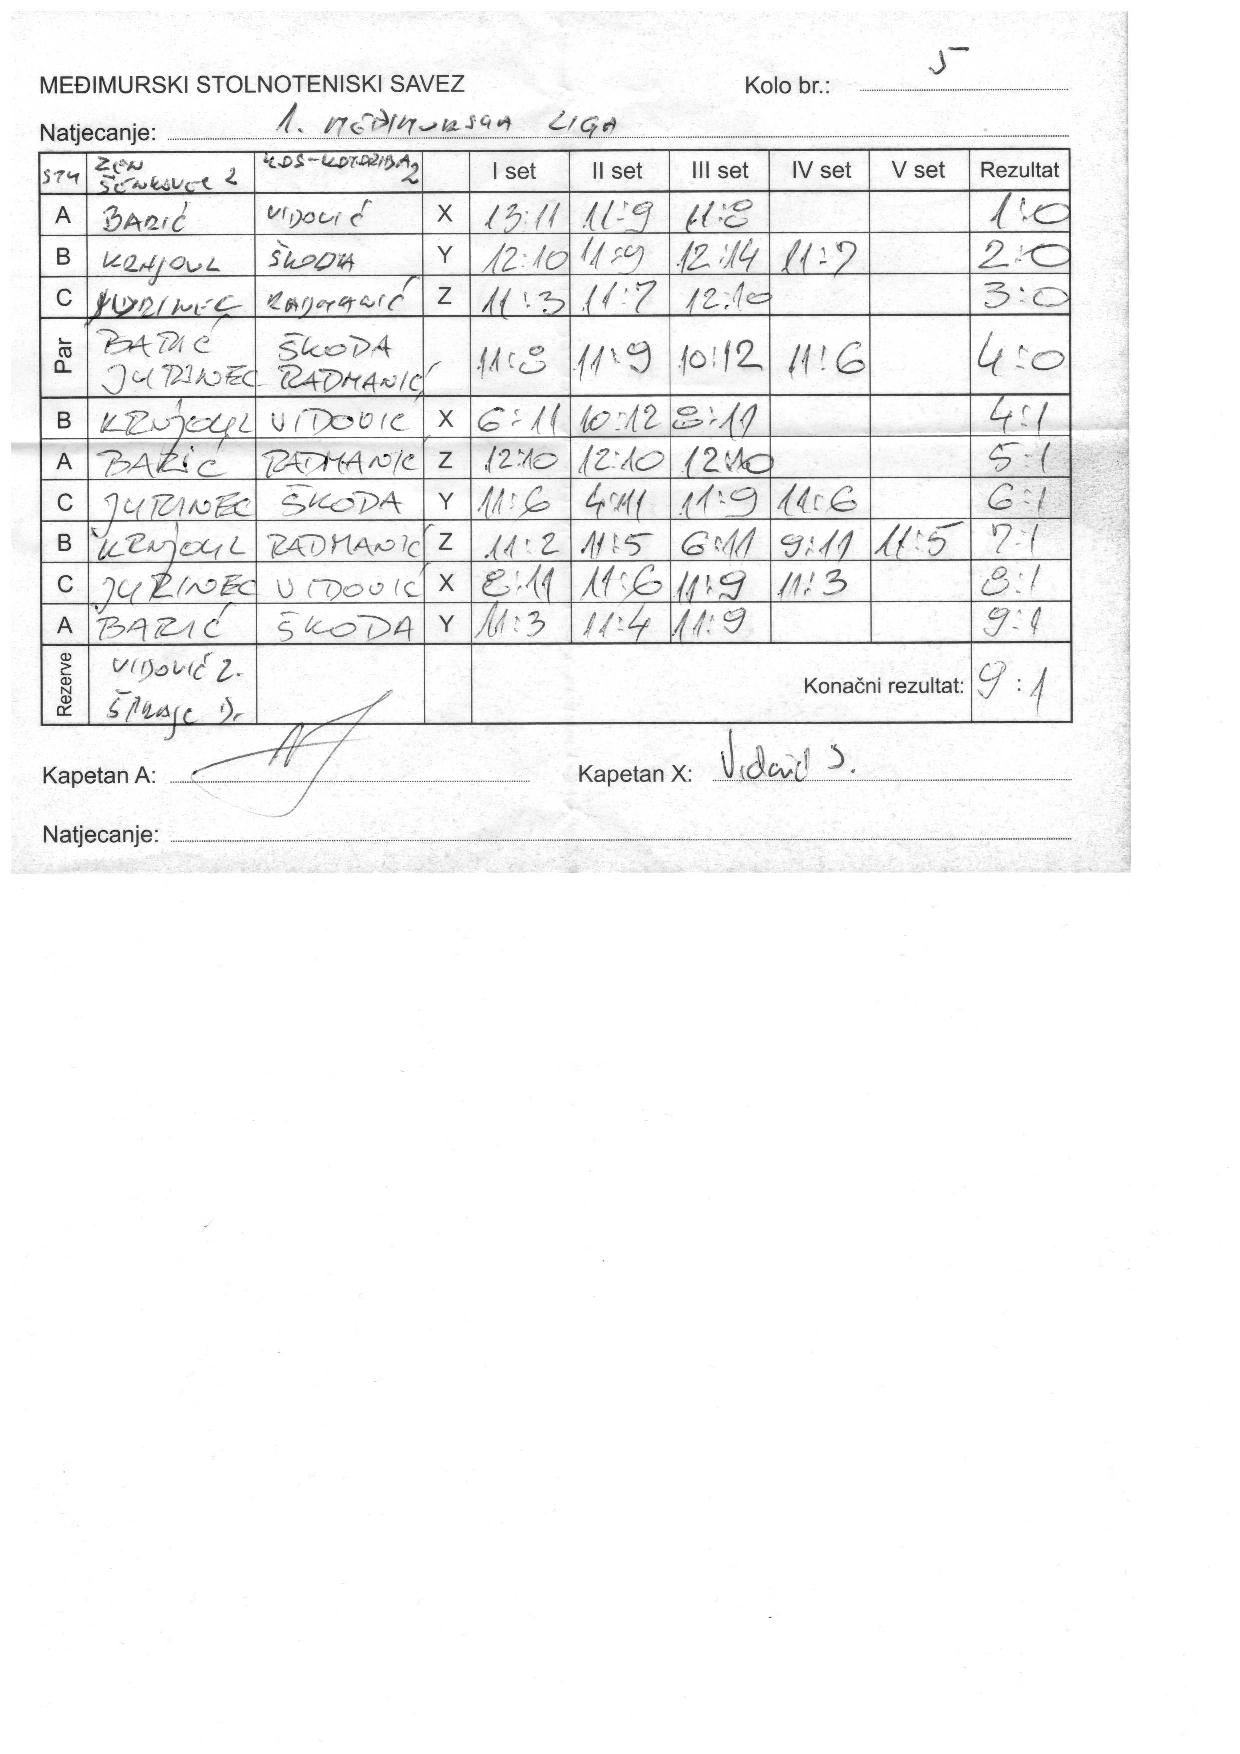 MEĐIMURSKI STOLNOTENISKI SAVEZ Kolo br.: 5
Natjecanje: 1. MEĐIMURSKA LIGA
ŠENKOVEC 2 KOTORIBA 2 I set II set III set IV set V set Rezultat
A BARIĆ VIDOVIĆ X 13:11 11:9 11:8 1:0
B ŠKODA Y 12:10 11:9 12:14 11:7 2:0
C JURINEC RADMANIĆ Z 11:3 11:7 12:10 3:0
Par BARIĆ JURINEC ŠKODA RADMANIĆ 11:8 11:9 10:12 11:6 4:0
B VIDOVIĆ X 6:11 10:12 8:11 4:1
A BARIĆ RADMANIĆ Z 12:10 12:10 12:10 5:1
C JURINEC ŠKODA Y 11:6 4:11 11:9 11:6 6:1
B RADMANIĆ Z 11:2 11:5 6:11 9:11 11:5 7:1
C JURINEC VIDOVIĆ X 8:11 11:6 11:9 11:3 8:1
A BARIĆ ŠKODA Y 11:3 11:4 11:9 9:1
Rezerve VIDOVIĆ Z. Konačni rezultat: 9:1
Kapetan A: Kapetan X:
Natjecanje: